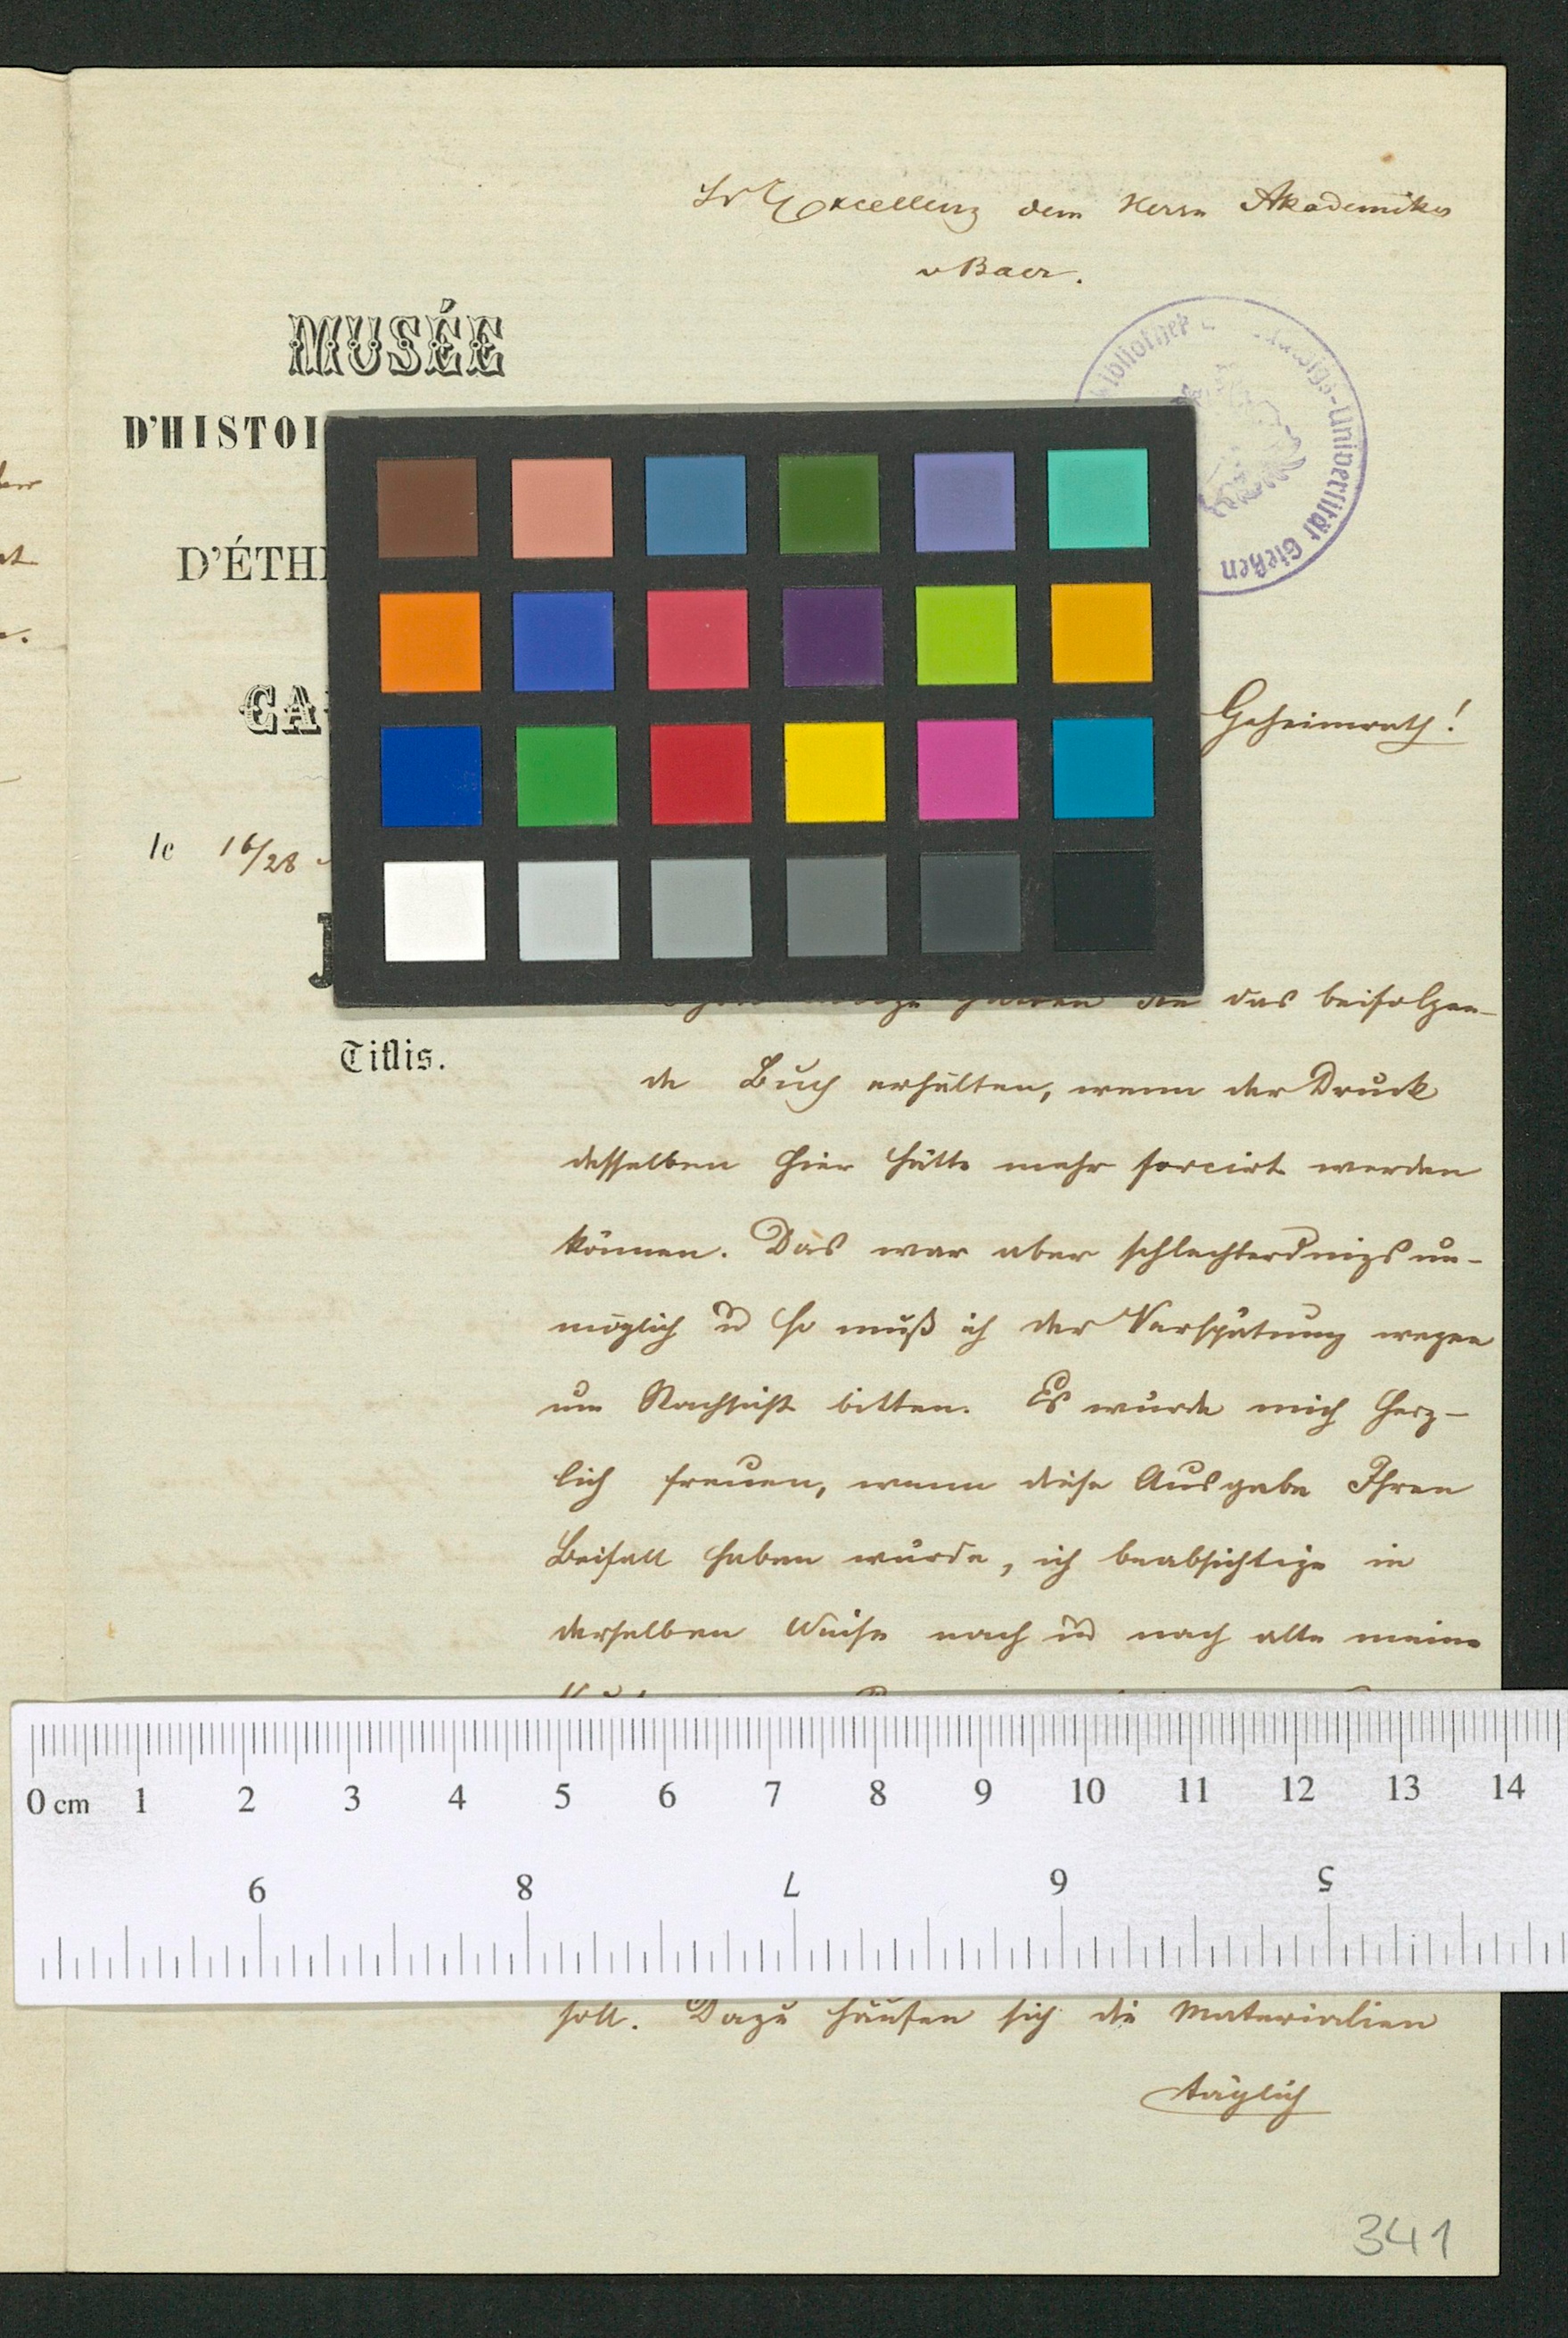 Sr Excellenz dem Herrn Akademiker
v Baer.
MUSÉE
D'HISTOI
D'ÉTH
CA
Geheimrath!
le 16/28
Tiflis.
das beifolgen-
de Buch erhalten, wenn der Druck
desselben hier hätte mehr forcirt werden
können. Das war aber schlechterdings un-
möglich u so muß ich der Verspätung wegen
um Nachsicht bitten. Es würde mich herz-
lich freuen, wenn diese Ausgabe Ihren
Beifall haben würde, ich beabsichtige in
derselben Weise nach u nach alle meine
0 cm 1 2 3 4 5 6 7 8 9 10 11 12 13 14
9 8 7 6 5
soll. Dazu häufen sich die Materialien
täglich
341